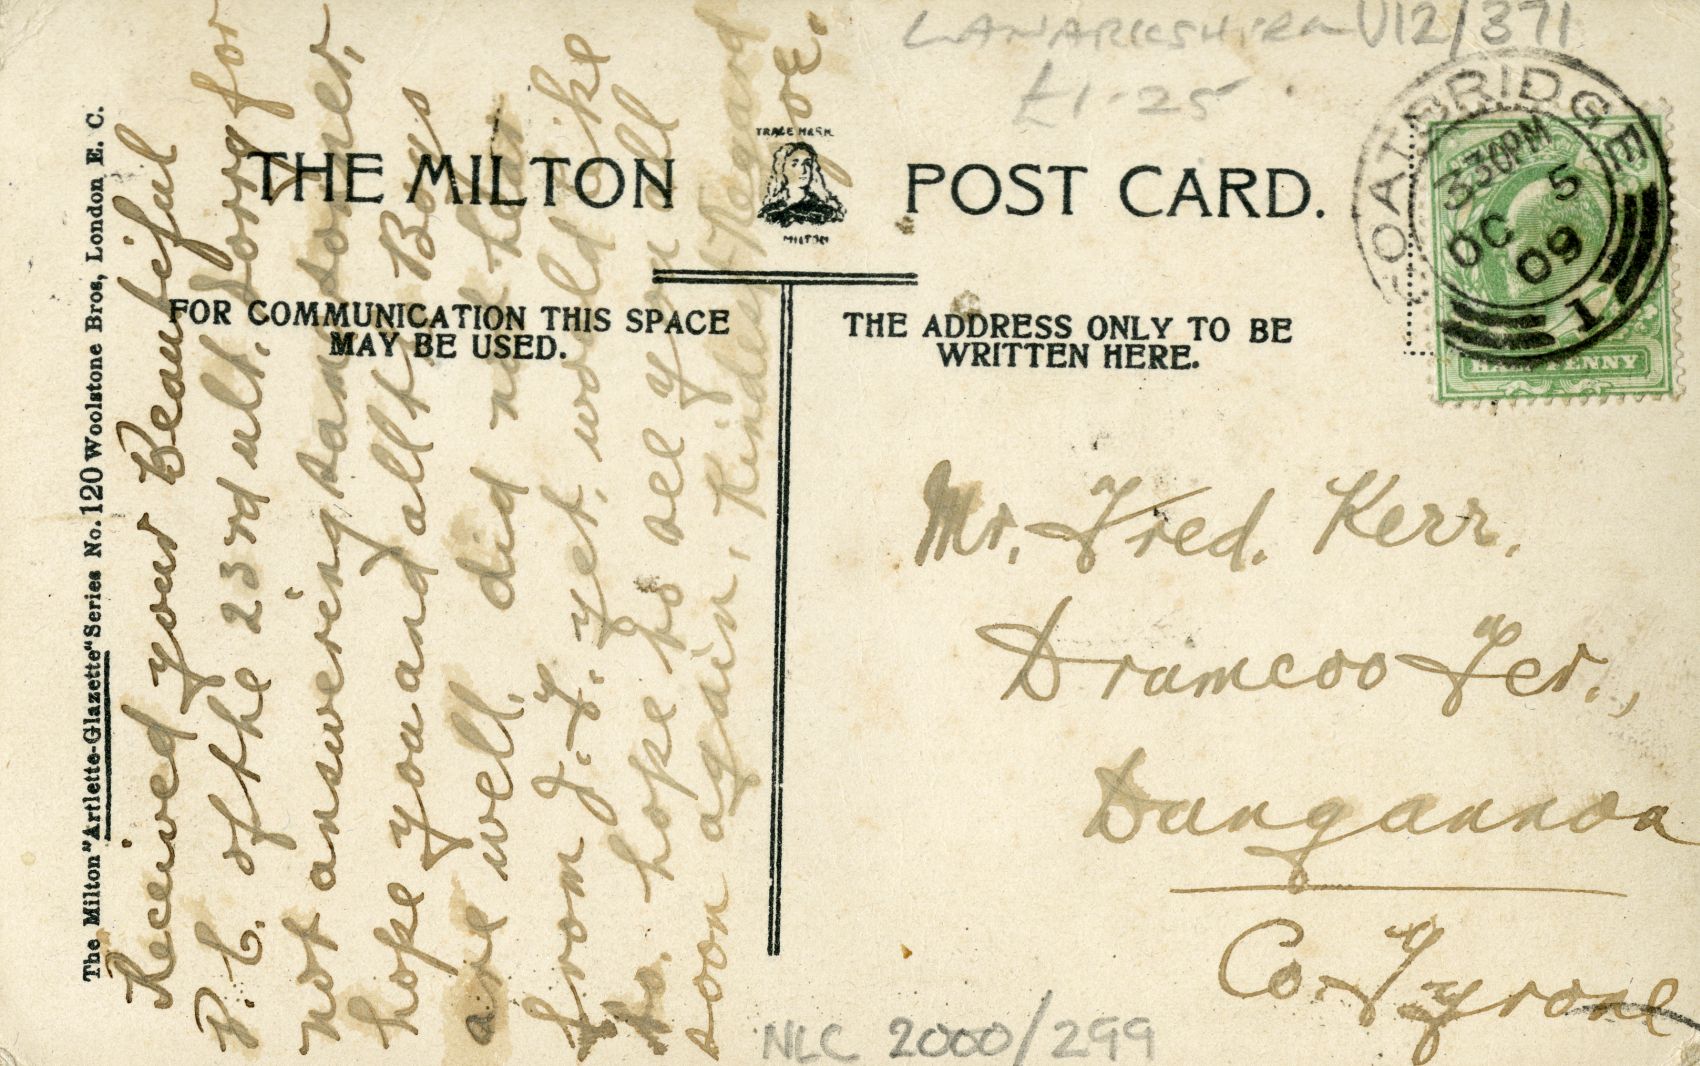 LANARKSHIRE U12/371
£1-25
THE MILTON POST CARD.
TRADE MARK
MILTON
FOR COMMUNICATION THIS SPACE
MAY BE USED.
THE ADDRESS ONLY TO BE
WRITTEN HERE.
COATBRIDGE
330PM
OC 5
09
1
HALFPENNY
The Milton "Artlette-Glazette" Series No. 120 Woolstone Bros, London E. C.
Received your Beautiful
P. C. of the 23rd ult. Sorry for
not answering same sooner,
hope you and all the Boys
are well, did not hear
from J. Y. yet, would like
to hope to see you all
soon again, Kindest Regards
Joe.
Mr. Fred. Kerr.
Drumcoo Ter.,
Dungannon
Co. Tyrone
NLC 2000/299